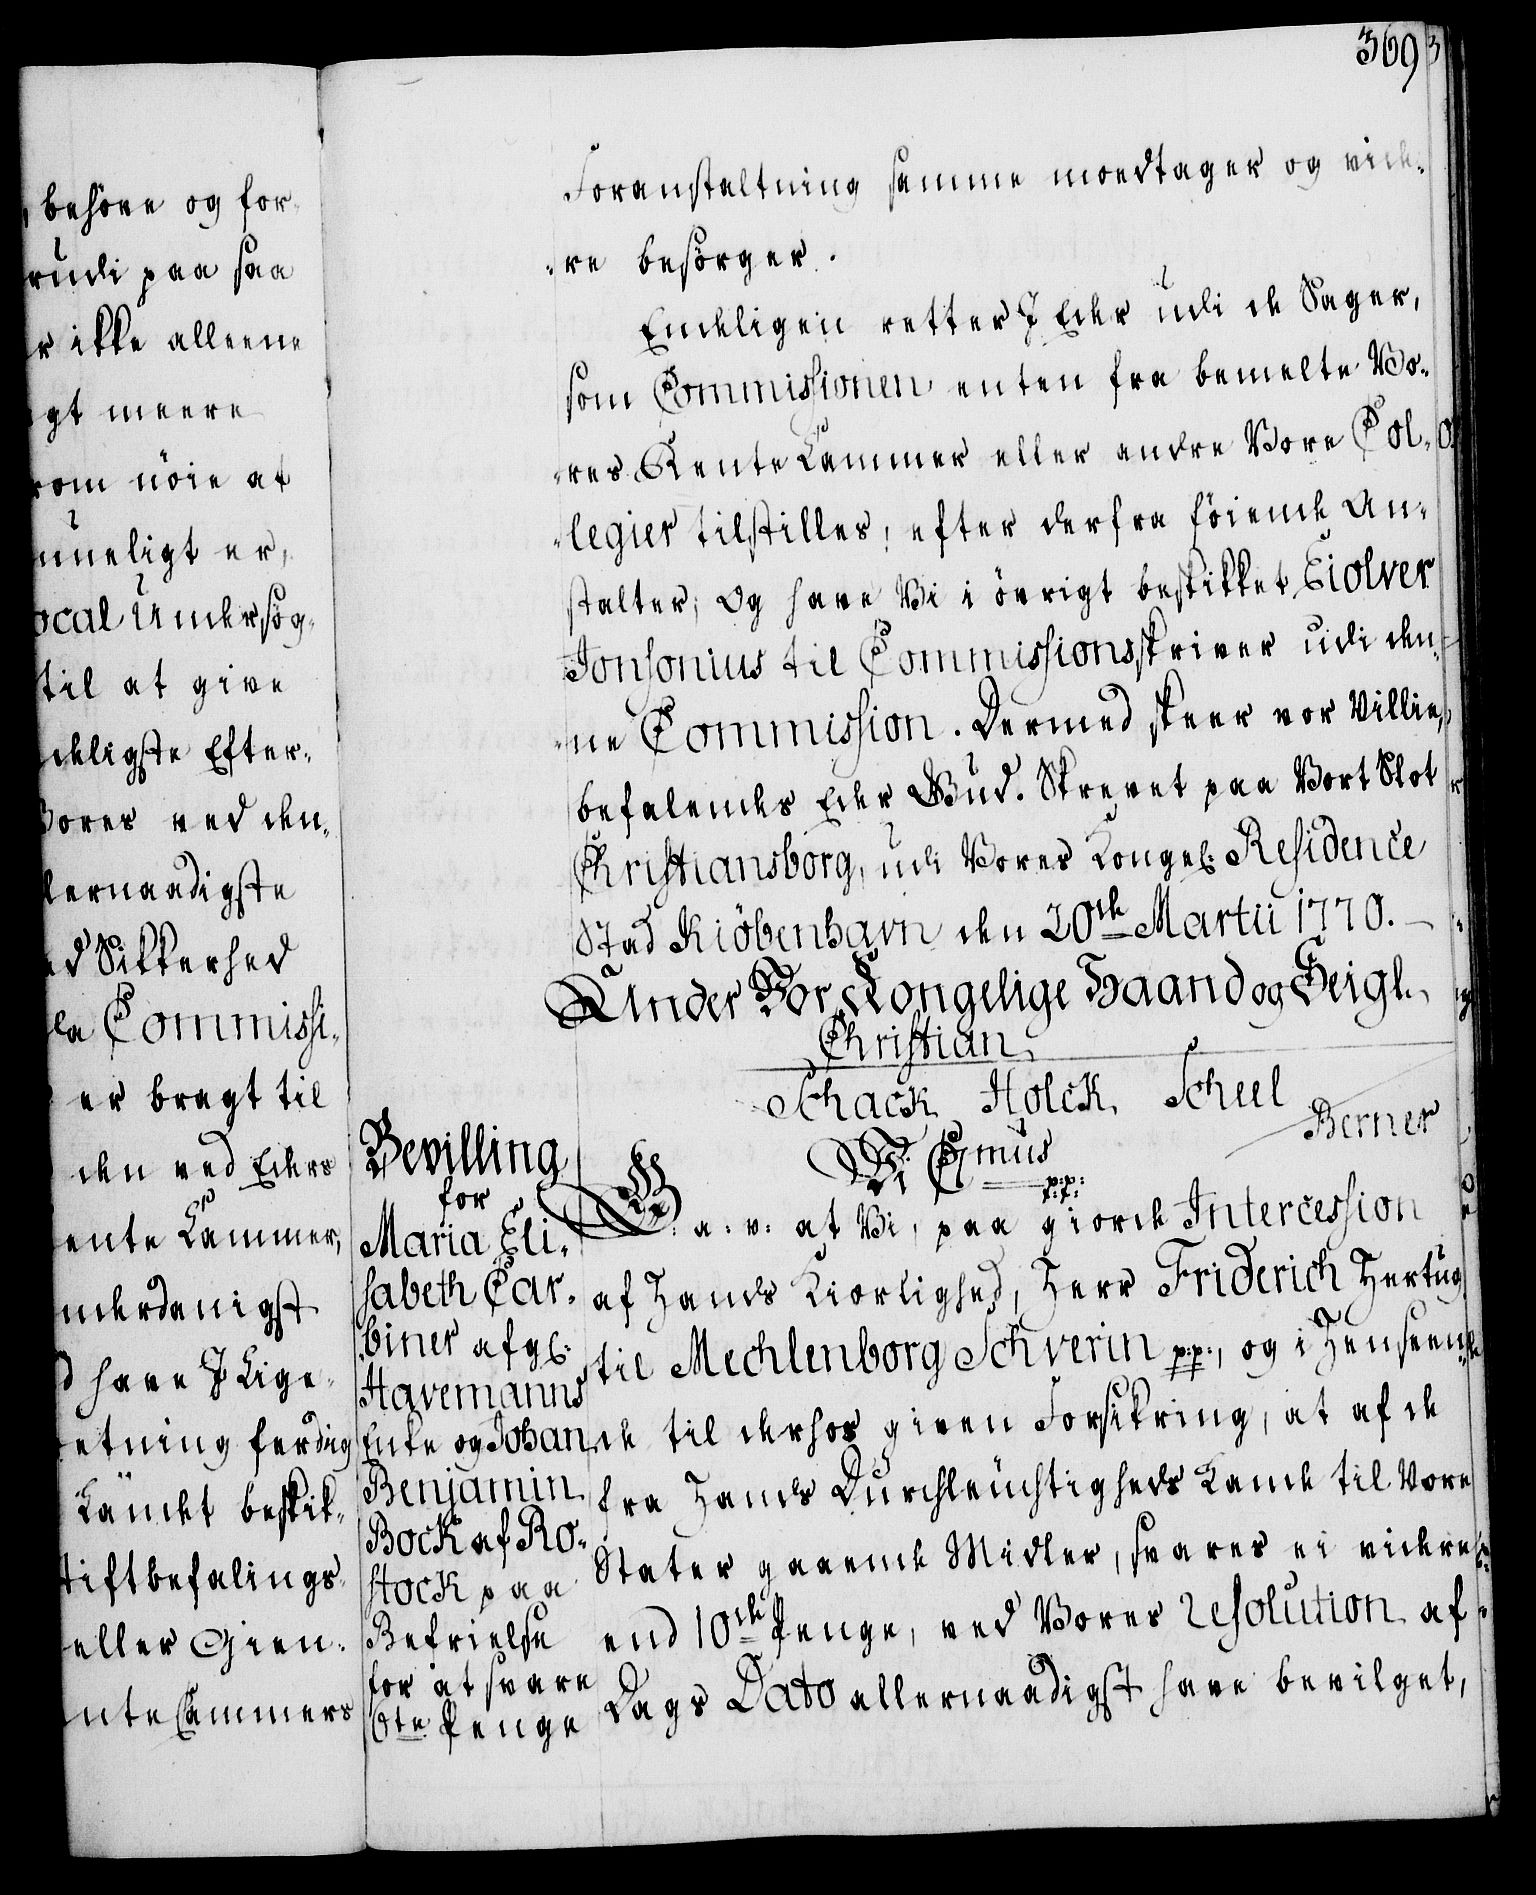 369
behöve og for-
rudi paa saa
r ikke alleene
gt meere
rom nöie at
mueligt er,
ocal Undersög-
til at give
deligste Efter-
Vores ved den-
lernaadigste
ed Sikkerhed
la Commissi-
er bragt til
den ved Eders
ente Cammer,
underdanigst
d have I Lige-
retning ferdig
Landet beskik-
tiftbefalings-
eller Gien-
nte Cammers
Foranstaltning samme moedtager og vide-
-re besörger.
Endeligen retter I Eder udi de Sager,
som Commissionen enten fra bemelte Vo-
-res Rente Cammer eller andre Vore Col-
-legier tilstilles, efter derfra föiende An-
stalter; Og have Vi i övrigt beskikket Eiolver
Jonsonius til Commissionsskriver udi den-
-ne Commission. Dermed skeer vor Villie,
befalendes Eder Gud. Skrevet paa Vort Slot
Christiansborg, udi Vores Kongel: Residence
Stad Kiöbenhavn den 20de Martii 1770.
Under Vor Kongelige Haand og Seigl.
Christian
Schack Holck, Scheel
Berner
Bevilling
for
Maria Eli-
sabeth Car-
biner afgl:
Havemanns
Enke og Johan
Benjamin
Bock af Ro-
stock paa
Befrielse
for at svare
6te Penge
Vi C7mus
p:p:
G: a: v: at Vi, paa giorde Intercession
af Hands Kiærlighed, Herr Friderich Hertug
til Mechlenborg Schverin p:p:, og i Henseen-
de til derhos given Forsikring, at af de
fra Hands Durchleuchtigheds Lande til Vore
Stater gaaende Midler, svares ei videre
end 10de Penge, ved Vores resolution af
Dags Dato allernaadigst have bevilget,